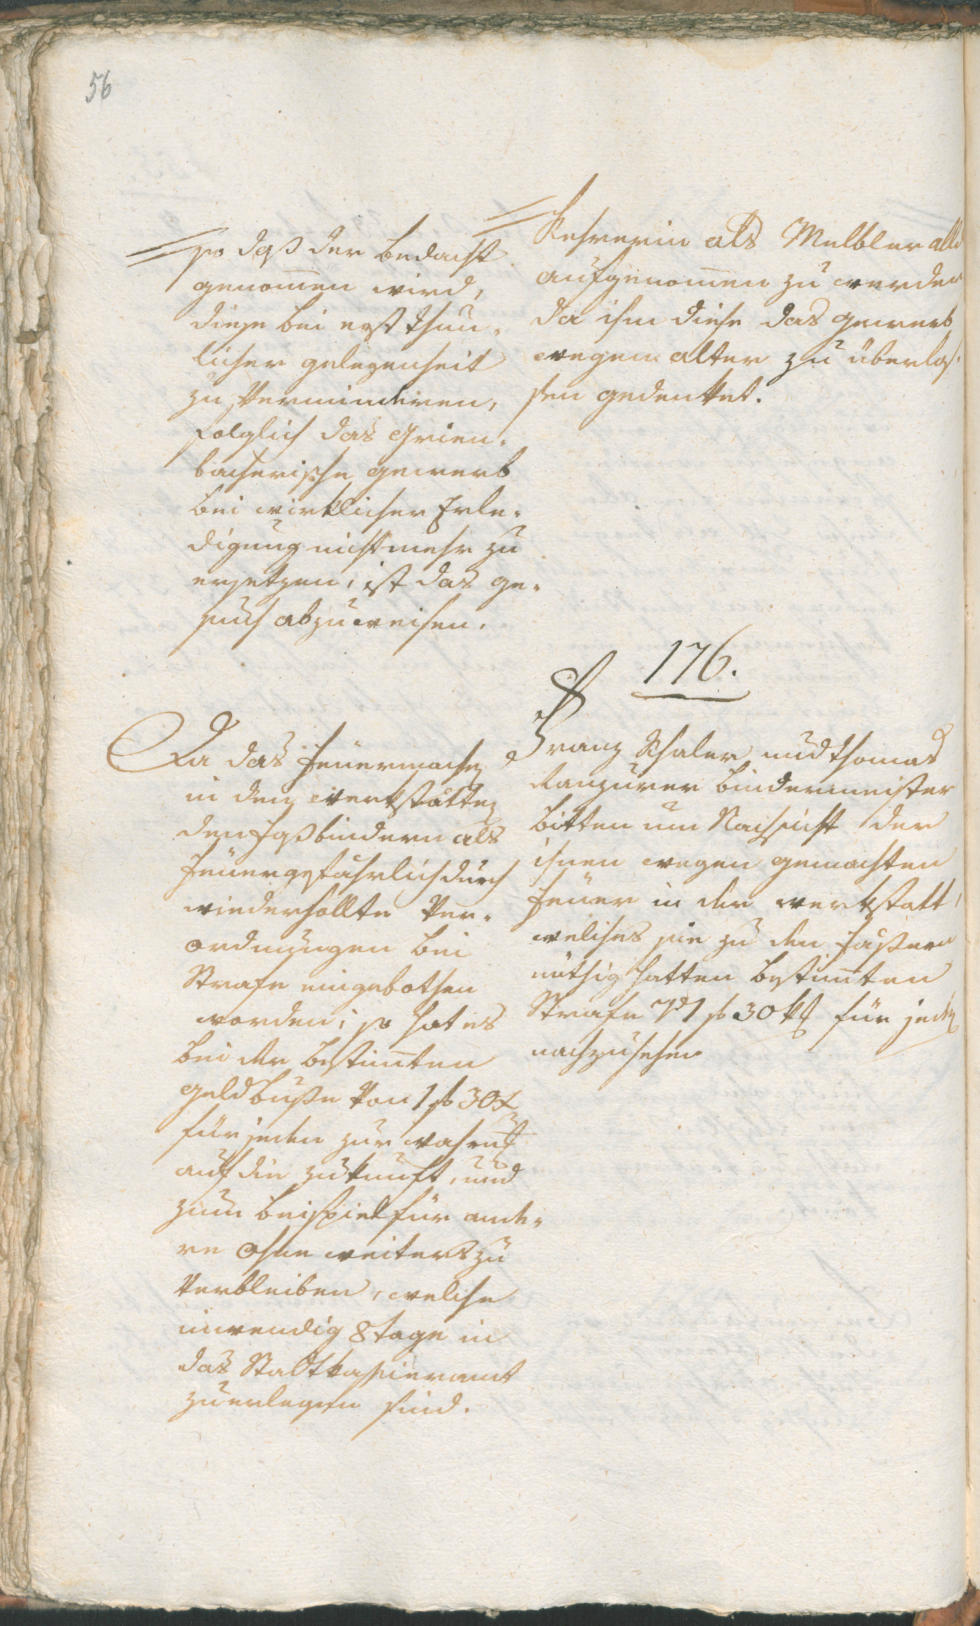 56
so daß der bedacht
genom̄en wird,
diese bei erst thun-
licher gelegenheit
zu Verminderen,
folglich das Grien-
bacherische gewerb
bei wirklicher Erle-
digung nicht mehr zu
ersetzen, ist das ge-
such abzuweisen.
Da das feüermachen
in den werkstätten
den faßbindern als
feüergefährlich durch
wiederhollte Ver-
ordnungen bei
Strafe eingebothen
worden; so hat es
bei der bestim̄ten
geldbuße Von 1 f 30 x
für jeden zur
auf die zukunft, und
zum beispiel für ande-
re ohne weiters zu
Verbleiben, welche
inwendig 8 tage in
das Stadtkassieramt
zu erlegen sind.
als Melbler allda
aufgenom̄en zu werden
da ihm diese das gewerb
wegen alter zu überlas-
sen gedenket.
176.
Franz Thaler und Thomas
bindermeister
bitten um Nachsicht der
ihnen wegen gemachten
feüer in der werkstatt,
welches sie zu den faßern
nöthig hatten bestim̄ten
Strafe 1 f 30 für jeden
nachzusehen